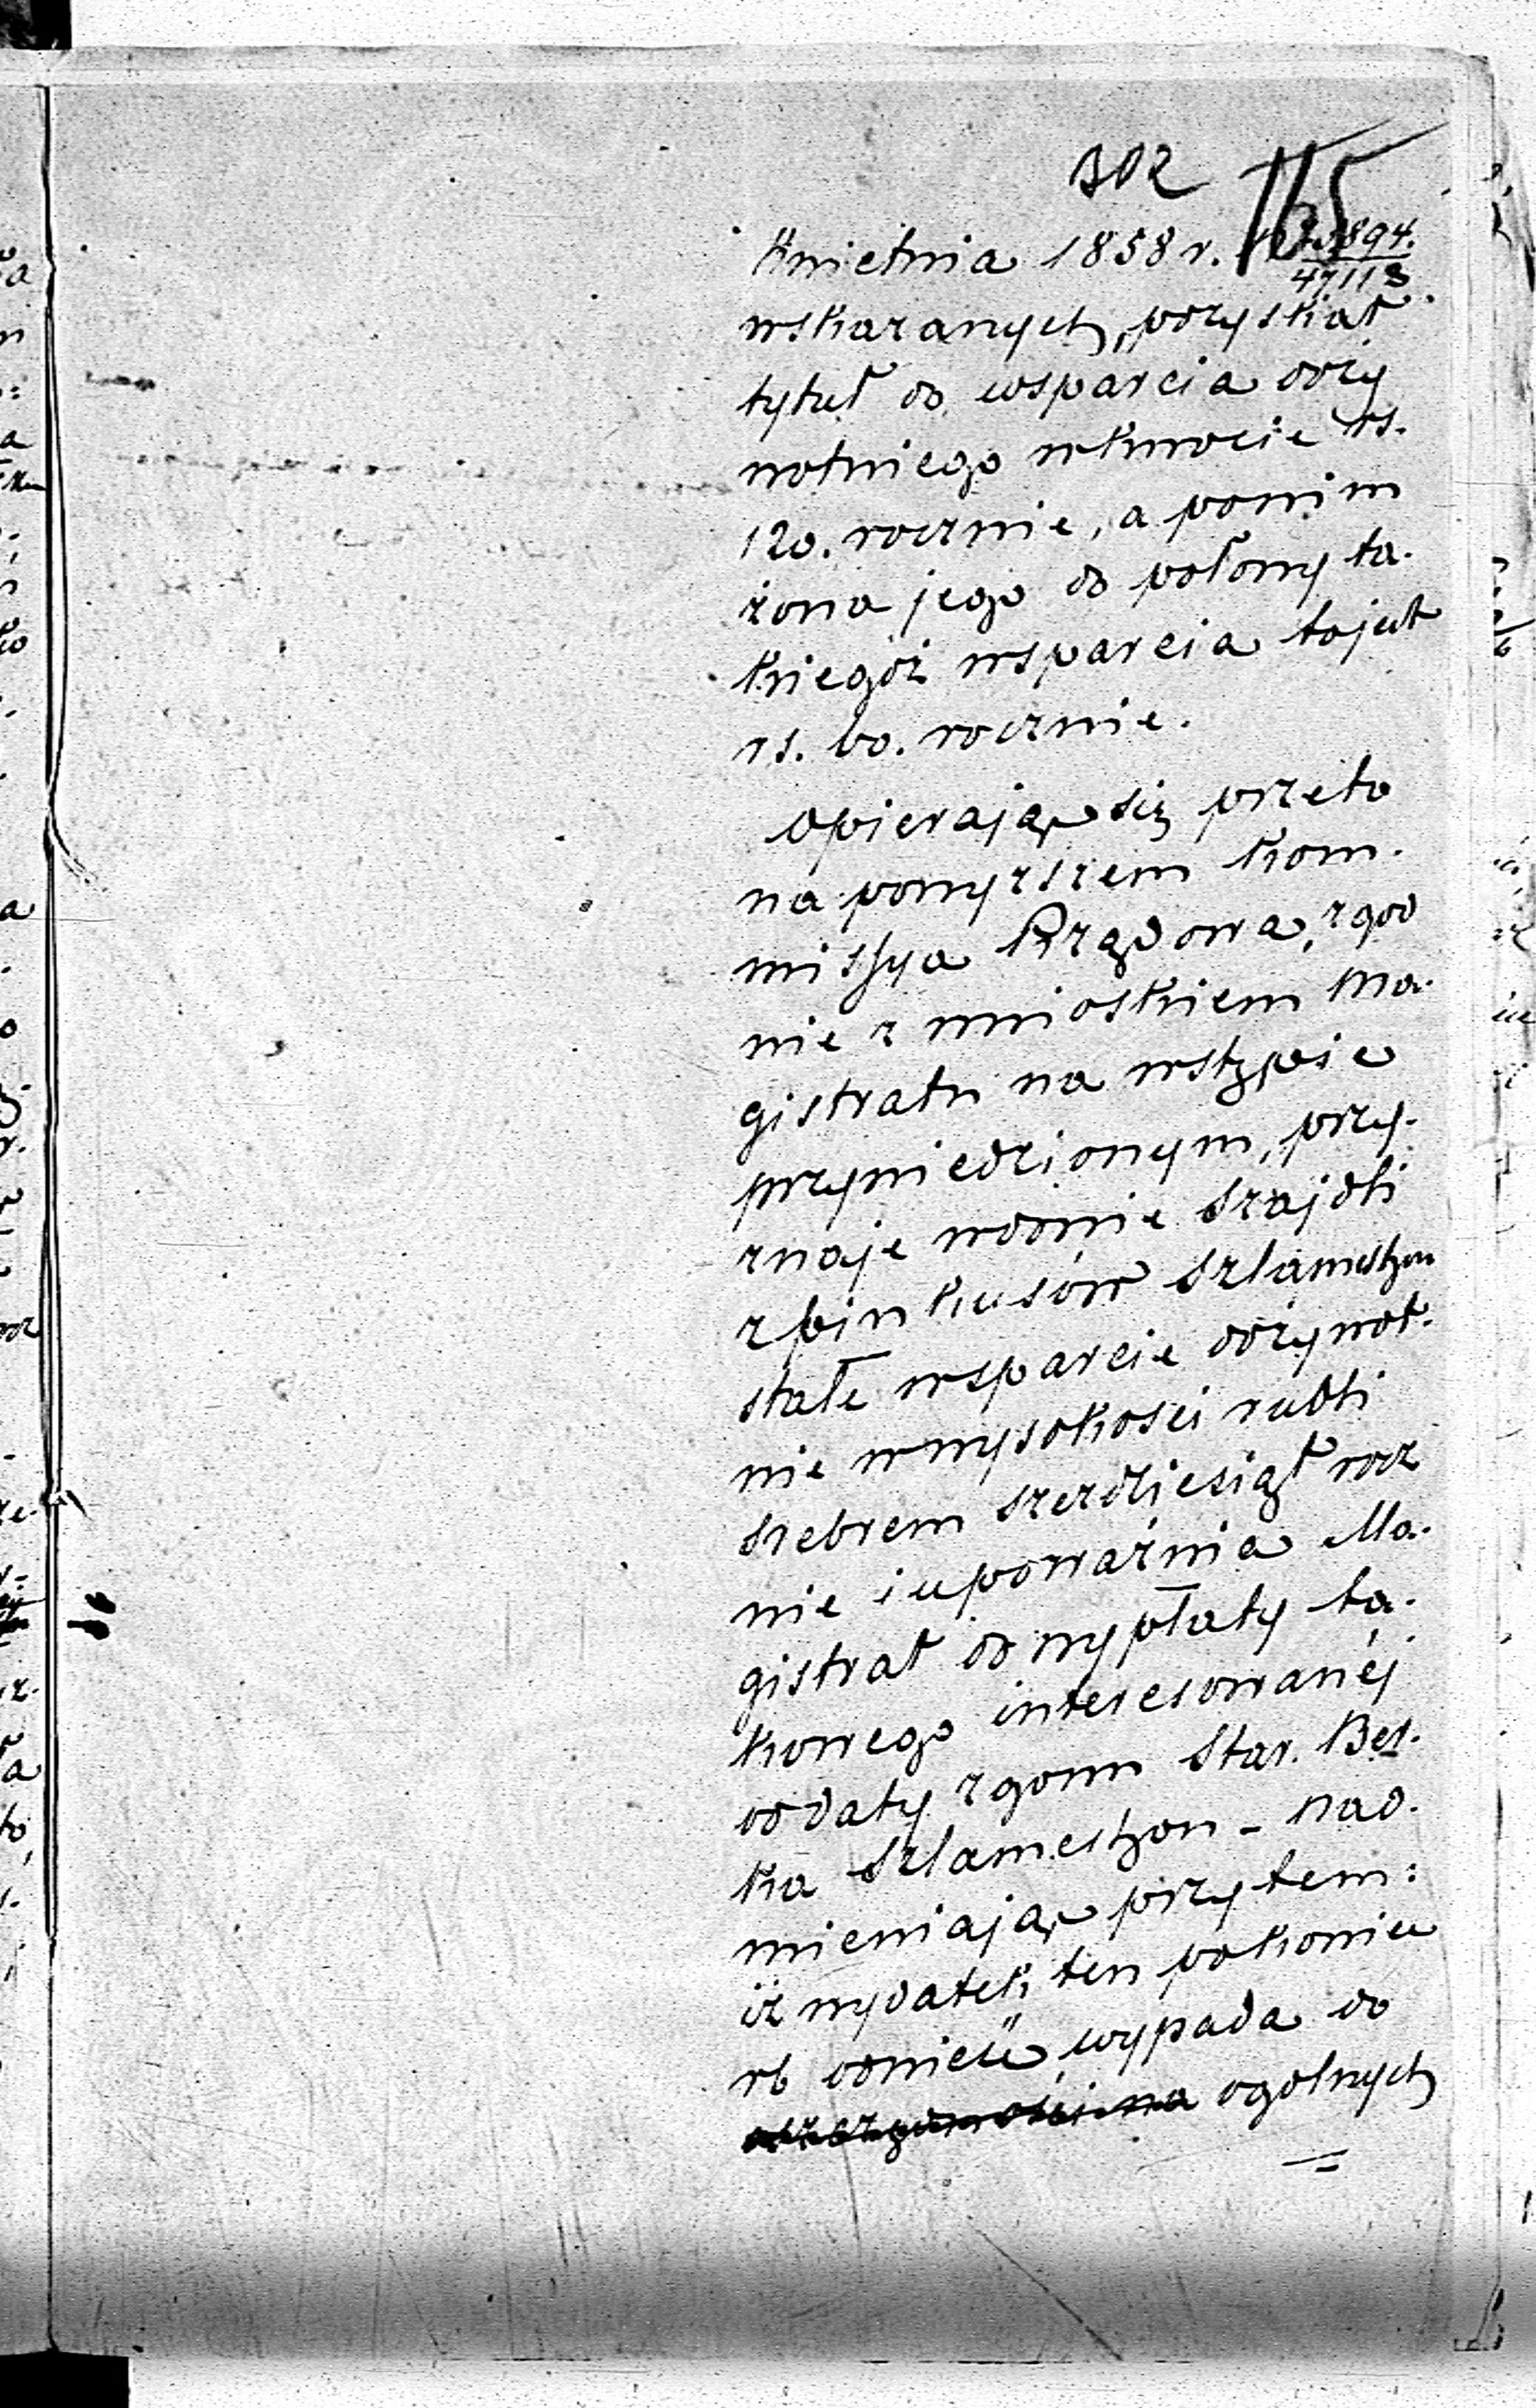 302 165
Kwietnia 1858 r. 894.
47113
wskazanych, pozyskał
tytuł do wsparcia doży
wotniego wkwocie rs.
120. rocznie, a ponim
żona jego do połowy ta-
kiegoż wsparcia tojest
rs. 60. rocznie.
Opierając się przeto
na powyższem Kom-
missya Rządowa, zgod
nie z wnioskiem Ma-
gistratu na wstępie
przywiedzionym, przy-
znaje wdowie Szajdli
z Pinkusów Szlamesztejn
stałe wsparcie dożywot-
nie wwysokości rubli
srebrem sześćdziesiąt rocz
nie i upoważnia Ma-
gistrat do wypłaty ta-
kowego interesowanéj
oddaty zgonu Star. Ber-
ka Szlamesztejn - nad-
mieniając przytem:
iż wydatek ten
odnieść wypada do
ogólnych